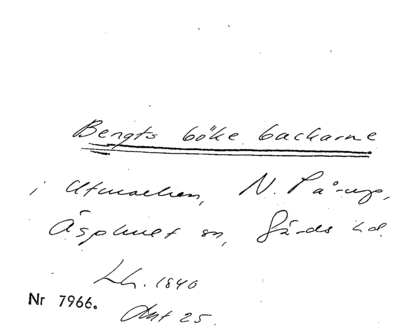 Bengts böke backarne
i Utmarken, N. Pårup,
Äsphult sn, Gärds hd.
Lh. 1840
Nr 7966.
Ant 25.